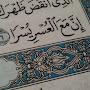 الَّذِي أَنقَضَ ظَهْرَكَ
إِنَّ مَعَ الْعُسْرِ يُسْرًا